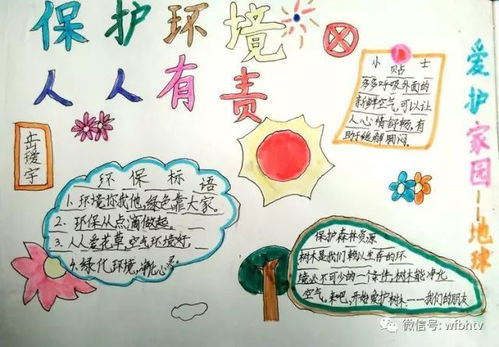 保护环境
人人有责
小贴士
多多呼吸外面的
新鲜空气,可以让
人心情舒畅,有
助于缓解烦闷。
爱护家园——地球
岳瑷宇
环保标语
1.环境你我他,绿色靠大家。
2.环保从点滴做起。
3.人人爱花草,空气环境好。
4.绿化环境,净化心灵
保护森林资源
树木是我们赖以生存的环
境必不可少的一个条件,树木能净化
空气,来吧,开始爱护树木——我们的朋友
微信号: wfbhtv